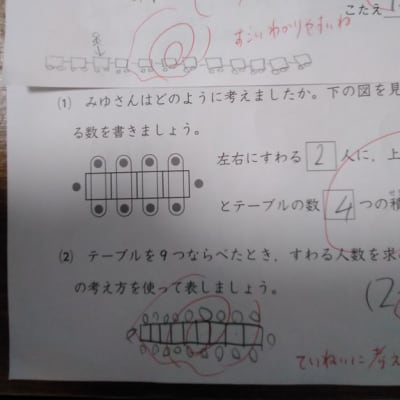 こたえ 1
すごいわかりやすいね
(1) みゆさんはどのように考えましたか。下の図を見
る数を書きましょう。
左右にすわる 2 人に、上
とテーブルの数 4 つの積
(2) テーブルを9つならべたとき、すわる人数を求
の考え方を使って表しましょう。
(2
ていねいに考え